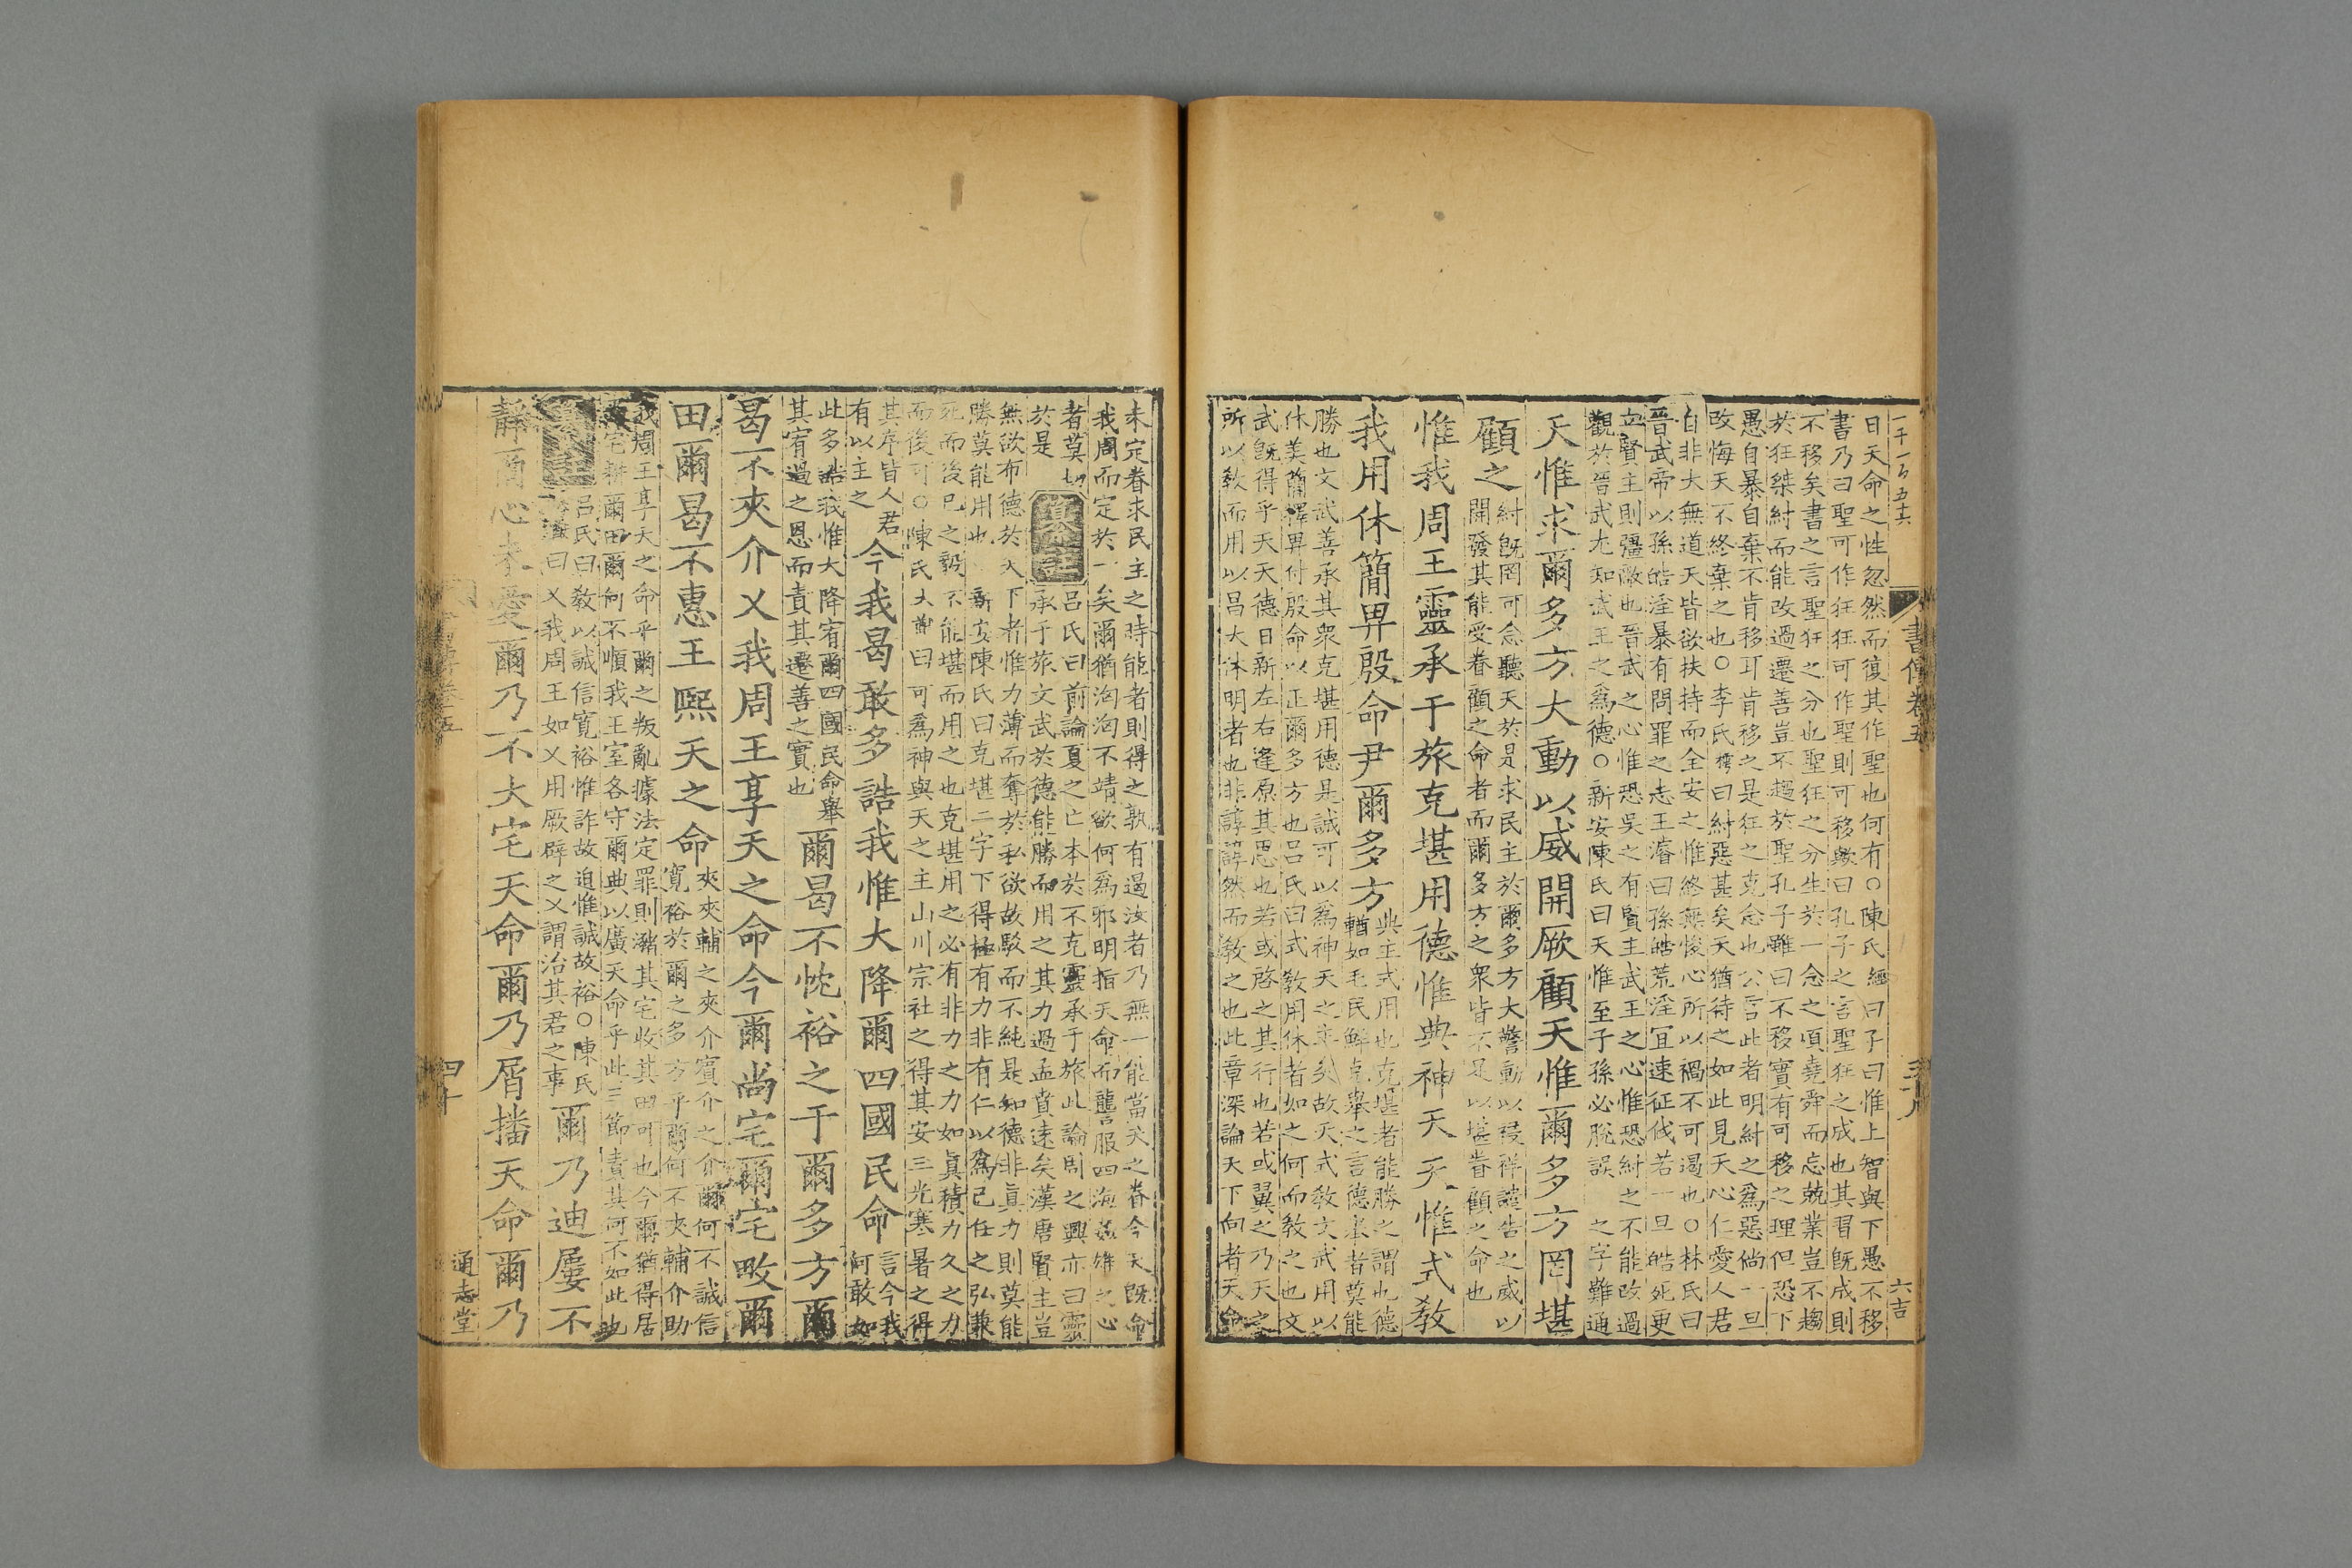 書傳卷五
六吉
曰天命之性忽然而復其作聖也何有○陳氏經曰子曰惟上智與下愚不移
書乃曰聖可作狂狂可作聖則可移歟曰孔子之言聖狂之成也其習旣成則
不移矣書之言聖狂之分也聖狂之分生於一念之頃堯舜而忘兢業豈不趨
於狂桀紂而能改過遷善豈不趨於聖孔子雖曰不移實有可移之理但恐下
愚自暴自棄不肯移耳肯移之是狂之克念也公言此者明紂之爲惡倘一旦
改悔天不終棄之也○李氏曰紂惡甚矣天猶待之如此見天心仁愛人君
自非大無道天皆欲扶持而全安之惟終無悛心所以禍不可遏也○林氏曰
晉武帝以孫皓淫暴有問罪之志王濬曰孫皓荒淫宜速征伐若一旦皓死更
立賢主則彊敵也晉武之心惟恐吳之有賢主武王之心惟恐紂之不能改過
觀於晉武尤知武王之爲德○新安陳氏曰天惟至子孫必脫誤之字難通
天惟求爾多方大動以威開厥顧天惟爾多方罔堪
顧之
紂旣罔可念聽天於是求民主於爾多方大警動以祲祥譴告之威以
開發其能受眷顧之命者而爾多方之衆皆不足以堪眷顧之命也
惟我周王靈承于旅克堪用德惟典神天天惟式敎
我用休簡畀殷命尹爾多方
典主式用也克堪者能勝之謂也德
輶如毛民鮮克舉之言德者莫能
勝也文武善承其衆克堪用德是誠可以爲神天之主矣故天式敎文武用以
休美簡擇畀付殷命以正爾多方也呂氏曰式敎用休者如之何而敎之也文
武旣得乎天天德日新左右逢原其思也若或啓之其行也若或翼之乃天之
所以敎而用以昌大休明者也非諄諄然而敎之也此章深論天下向者天命
未定眷求民主之時能者則得之孰有遏汝者乃無一能當天之眷今天旣命
我周而定於一矣爾猶洶洶不靖欲何爲邪明指天命而讋服四海姦雄之心
者莫切
於是
纂註
呂氏曰前論夏之亡本於不克靈承于旅此論周之興亦曰靈
承于旅文武於德能勝而用之其力過孟賁遠矣漢唐賢主豈
無欲布德於天下者惟力薄而奪於私欲故駁而不純是知德非眞力則莫能
勝莫能用也新安陳氏曰克堪二字下得極有力非有仁以爲己任之弘兼
死而後已之毅不能堪而用之也克堪用之必有非力之力如眞積力久之力
而後可○陳氏大猷曰可爲神與天之主山川宗社之得其安三光寒暑之得
其序皆人君
有以主之
今我曷敢多誥我惟大降爾四國民命
言今我
何敢如
此多誥我惟大降宥爾四國民命舉
其宥過之恩而責其遷善之實也
爾曷不忱裕之于爾多方爾
曷不夾介乂我周王享天之命今爾尚宅爾宅畋爾
田爾曷不惠王熙天之命
夾夾輔之夾介賓介之介爾何不誠信
寬裕於爾之多方乎爾何不夾輔介助
我周王享天之命乎爾之叛亂據法定罪則瀦其宅收其田可也今爾猶得居
宅耕爾田爾何不順我王室各守爾典以廣天命乎此三節責其何不如此也
纂註
呂氏曰敎以誠信寬裕惟詐故迫惟誠故裕○陳氏
曰乂我周王如乂用厥辟之乂謂治其君之事
爾乃迪屢不
靜爾心未愛爾乃不大宅天命爾乃屑播天命爾乃
四十
通志堂